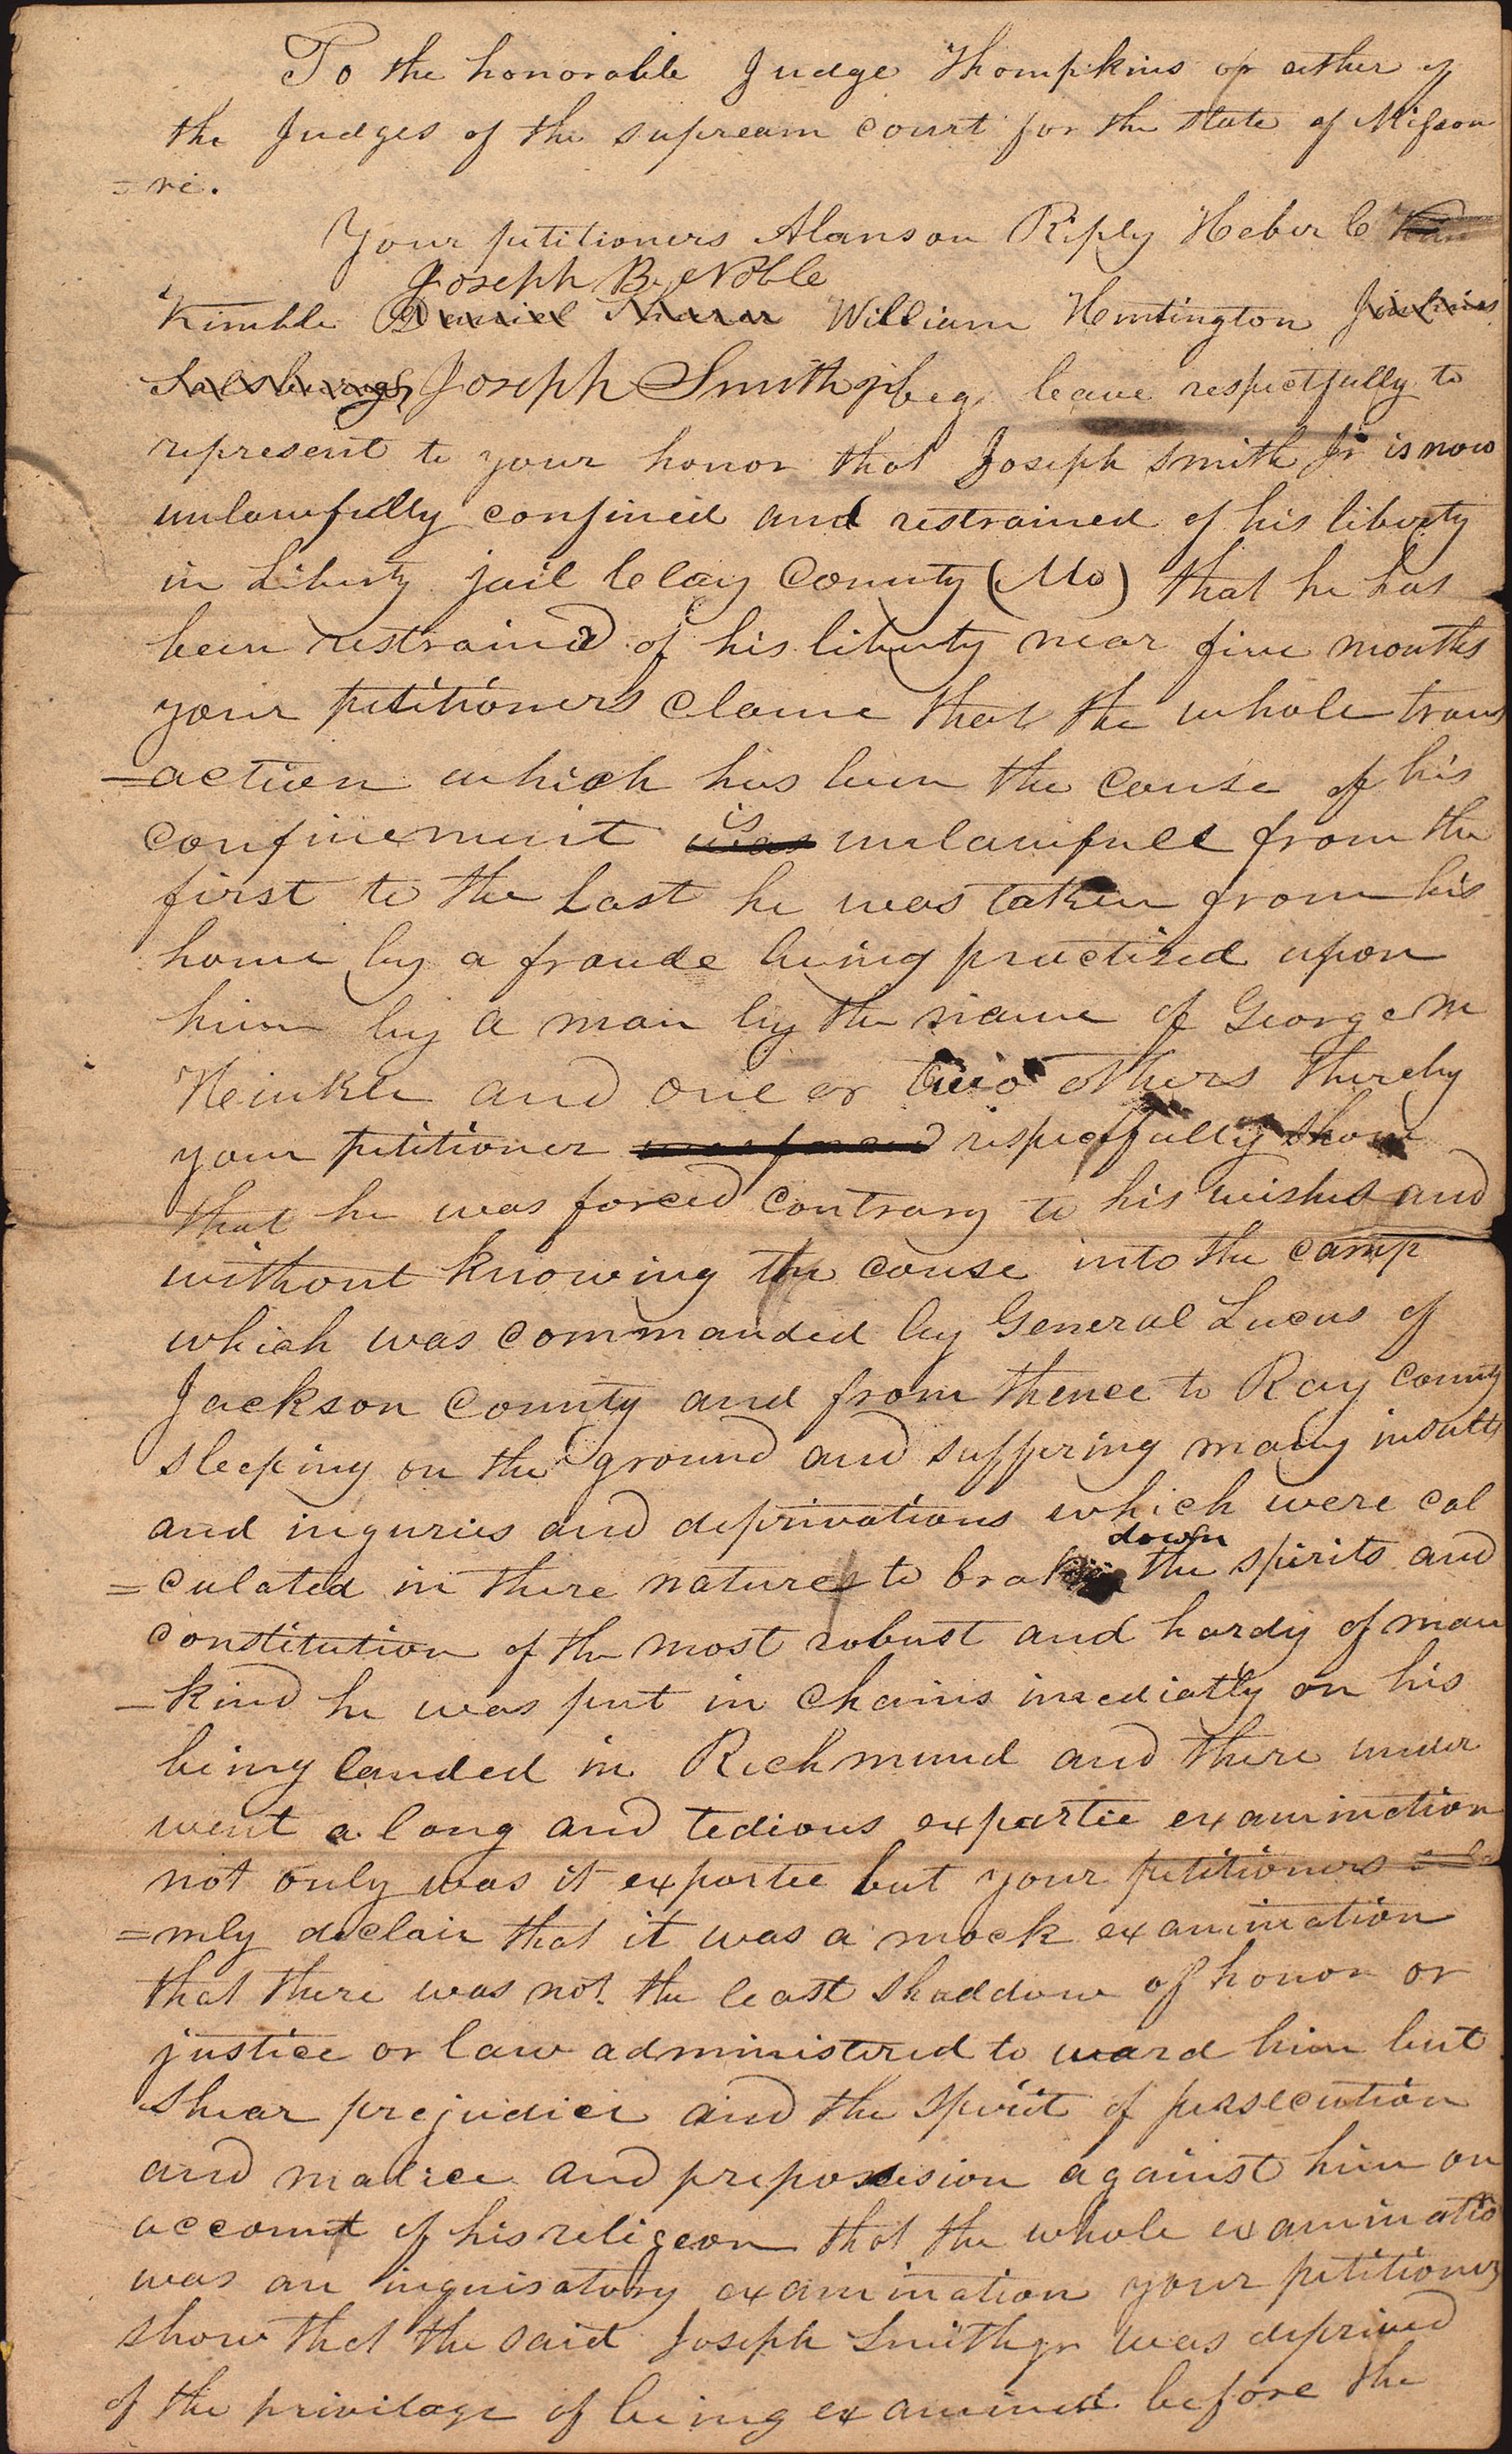 To the honorable Judge Thompkins or either of
the Judges of the supream court for the state of Missou
=ri.
Your petitioners Alanson Riply Heber C Kim
Joseph B. Noble
Kimble Daniel Shearer William Huntington Jinkins
Salsburough, Joseph Smith jr beg leave respectfully to
represent to your honor that Joseph Smith Jr is now
unlawfully confined and restrained of his liberty
in Liberty jail Clay County (Mo) that he has
been restrained of his liberty near five months
your petitioners clame that the whole trans
=action which has been the cause of his
is
confinement was unlawfull from the
first to the Last he was taken from his
home by a fraude being practised upon
him by a man by the name of George M
Heinkle and one or two others thereby
your petitioner was forced respectfully show
that he was forced contrary to his wishes and
without knowing the cause into the camp
which was commanded by General Lucas of
Jackson County and from thence to Ray County
sleeping on the ground and suffering many insults
and inguries and deprivations which were cal
down
=culated in there natures to brake the spirits and
constitution of the most robust and hardy of man
-kind he was put in chains imediatly on his
being landed in Richmund and there under
went a long and tedious expartie examination
not only was it expartee but your petitioners sole
=mly declair that it was a mock examination
that there was not the least shaddow of honor or
justice or law administered to ward him but
shear prejudice and the spirit of persecution
and malice and prepossesion against him on
account of his religeon that the whole examination
was an inquisatory examination your petitioners
show that the said Joseph Smith jr was deprived
of the privilage of being examined before the